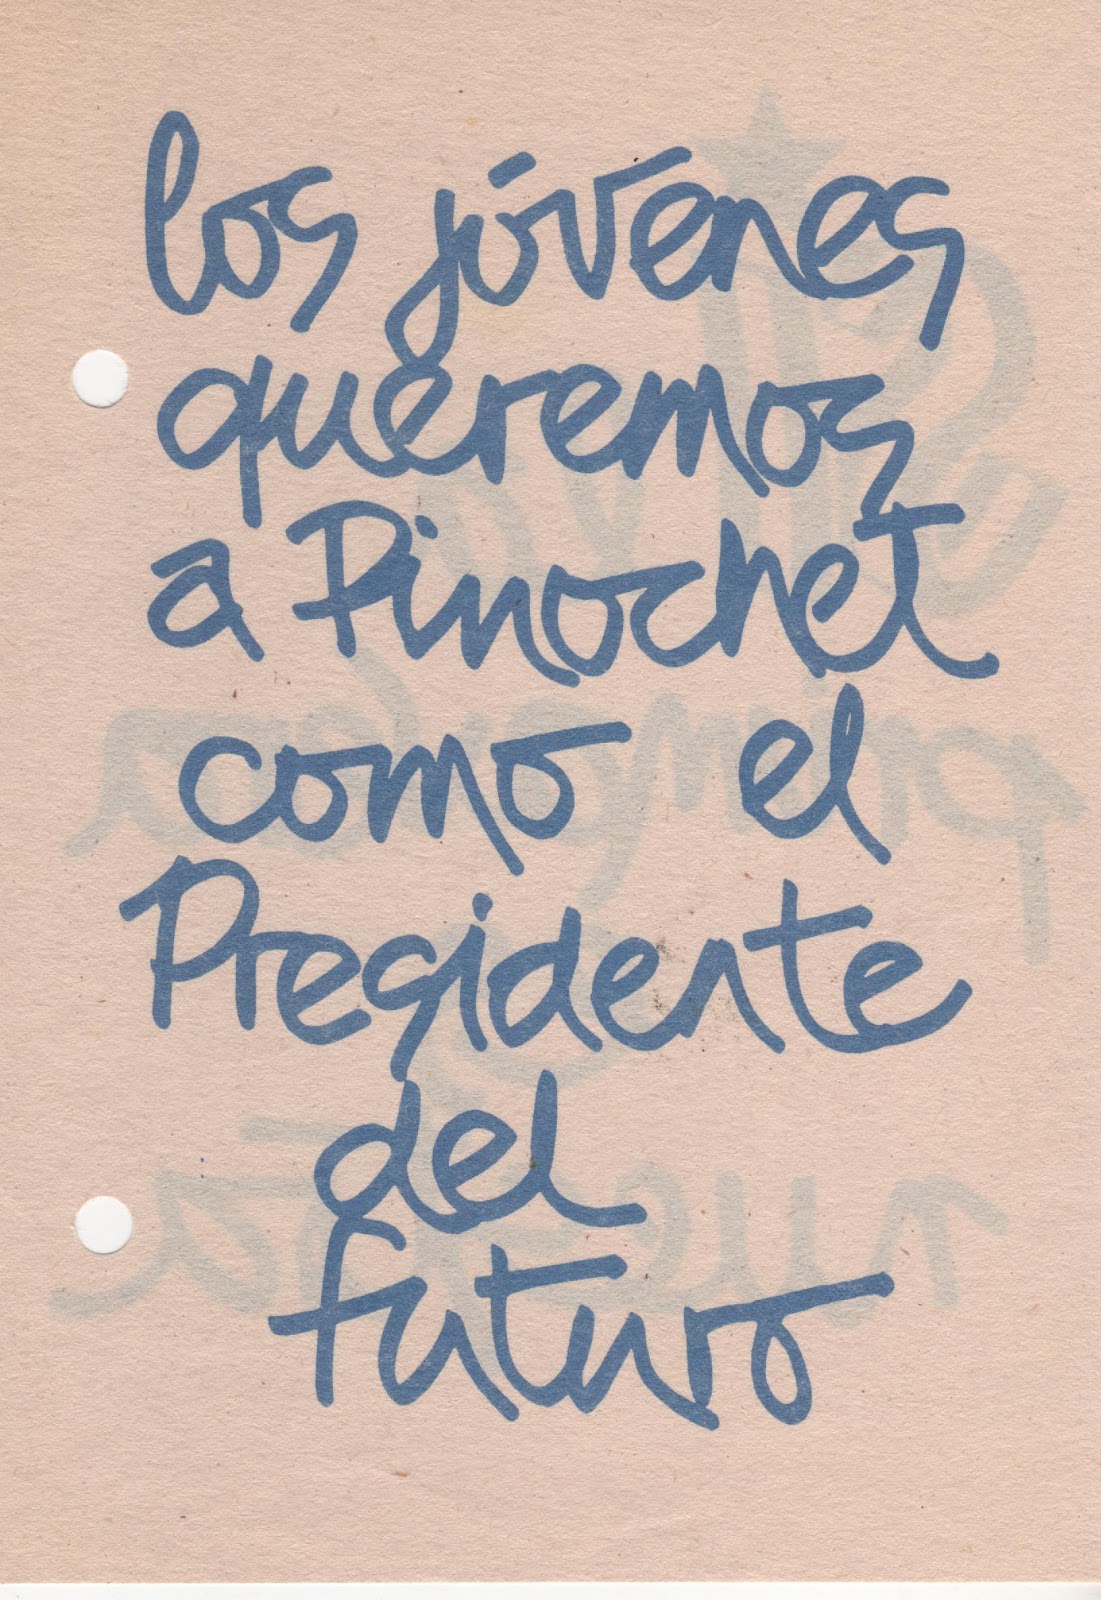 los jóvenes
queremos
a Pinochet
como el
Presidente
del
futuro